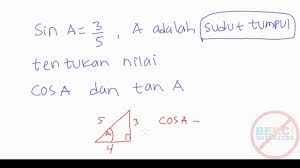 Sin A = 3/5 , A adalah sudut tumpul
tentukan nilai
cos A dan tan A
5 3 cos A =
A
4